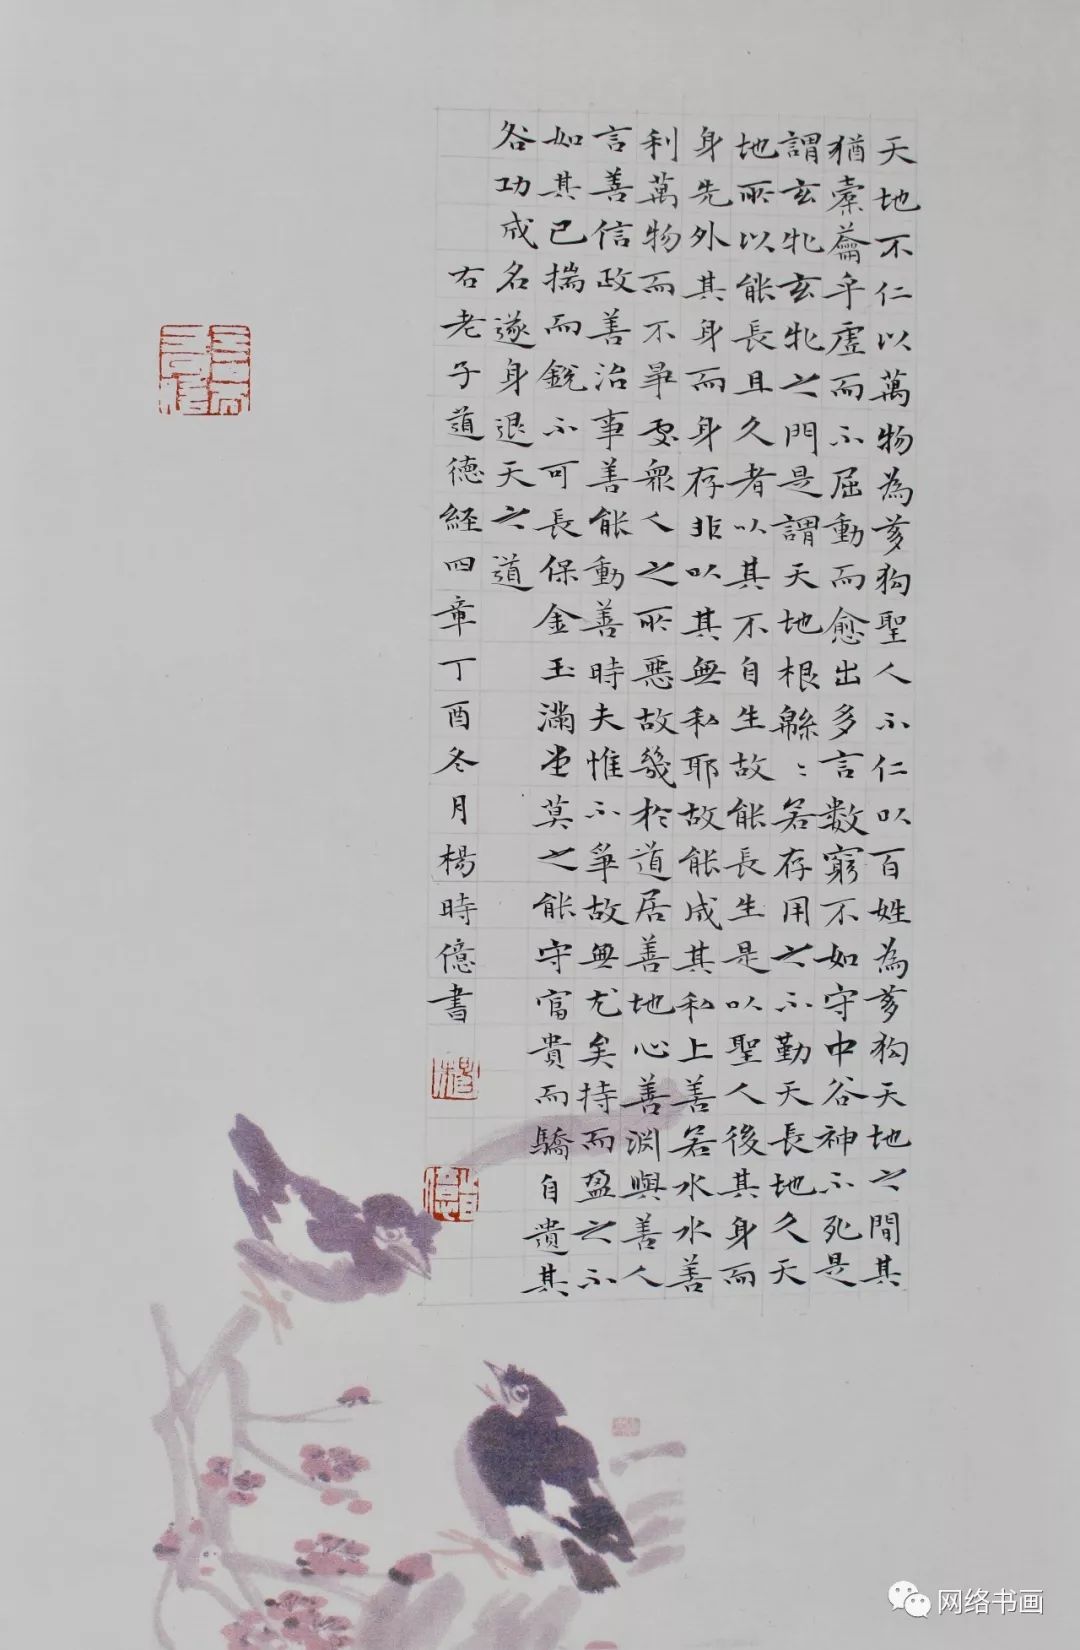 天地不仁以萬物為芻狗聖人不仁以百姓為芻狗天地之間其
猶橐籥乎虛而不屈動而愈出多言數窮不如守中谷神不死是
謂玄牝玄牝之門是謂天地根綿〻若存用之不勤天長地久天
地所以能長且久者以其不自生故能長生是以聖人後其身而
身先外其身而身存非以其無私耶故能成其私上善若水水善
利萬物而不爭處衆人之所惡故幾於道居善地心善渊與善人
言善信政善治事善能動善時夫惟不爭故無尤矣持而盈之不
如其已揣而銳不可長保金玉滿堂莫之能守富貴而驕自遺其
咎功成名遂身退天之道
右老子道德経四章丁酉冬月楊時億書
网络书画